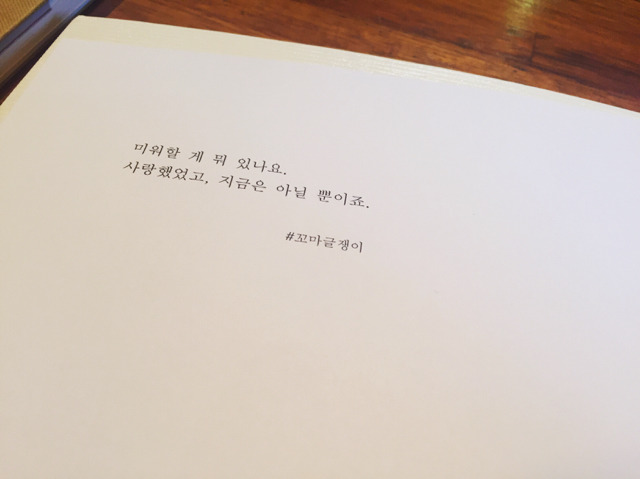 미워할 게 뭐 있나요.
사랑했었고, 지금은 아닐 뿐이죠.
#꼬마글쟁이